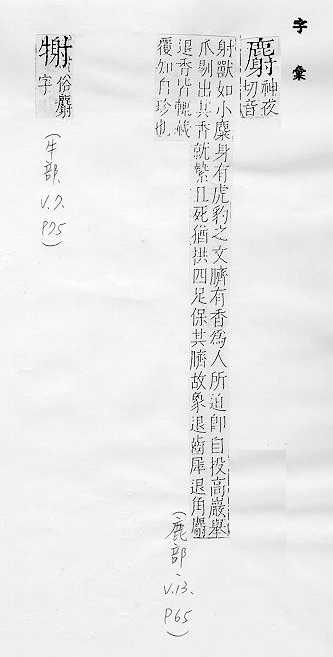 字彙
麝神夜切音
射獸如小麋身有虎豹之文臍有香爲人所迫卽自投高巖舉
爪剔出其香就縶且死猶拱四足保其臍故象退齒犀退角麝
退香皆輒藏
覆知自珍也
(鹿部、V.13. P65)
𤙱俗麝字
(牛部、V.7. P75)